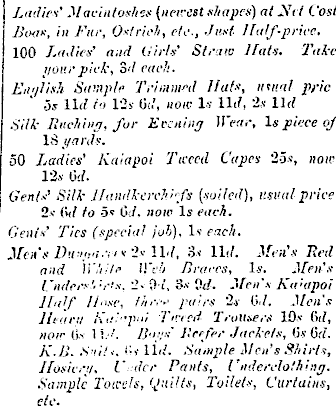 Ladies' Macintoshes (newest shapes) at Net Cost
Boas, in Fur, Ostrich, etc., Just Half-price.
100 Ladies' and Girls' Straw Hats. Take
your pick, 3d each.
English Sample Trimmed Hats, usual pric
5s 11d to 12s 6d, now 1s 11d, 2s 11d
Silk Ruching, for Evening Wear, 1s piece of
18 yards.
50 Ladies' Kaiapoi Tweed Capes 25s, now
12s 6d.
Gents' Silk Handkerchiefs (soiled), usual price
2s 6d to 5s 6d. now 1s each.
Gents' Ties (special job), 1s each.
Men's Dungarees 2s 11d, 3s 11d. Men's Red
and White Web Braces, 1s. Men's
Undershirts, 2s 9d, 3s 9d. Men's Kaiapoi
Half Hose, three pairs 2s 6d. Men's
Heavy Kaiapoi Tweed Trousers 10s 6d,
now 6s 11d. Boys' Reefer Jackets, 6s 6d.
K.B. Suits, 6s 11d. Sample Men's Shirts,
Hosiery, Under Pants, Underclothing.
Sample Towels, Quilts, Toilets, Curtains,
etc.